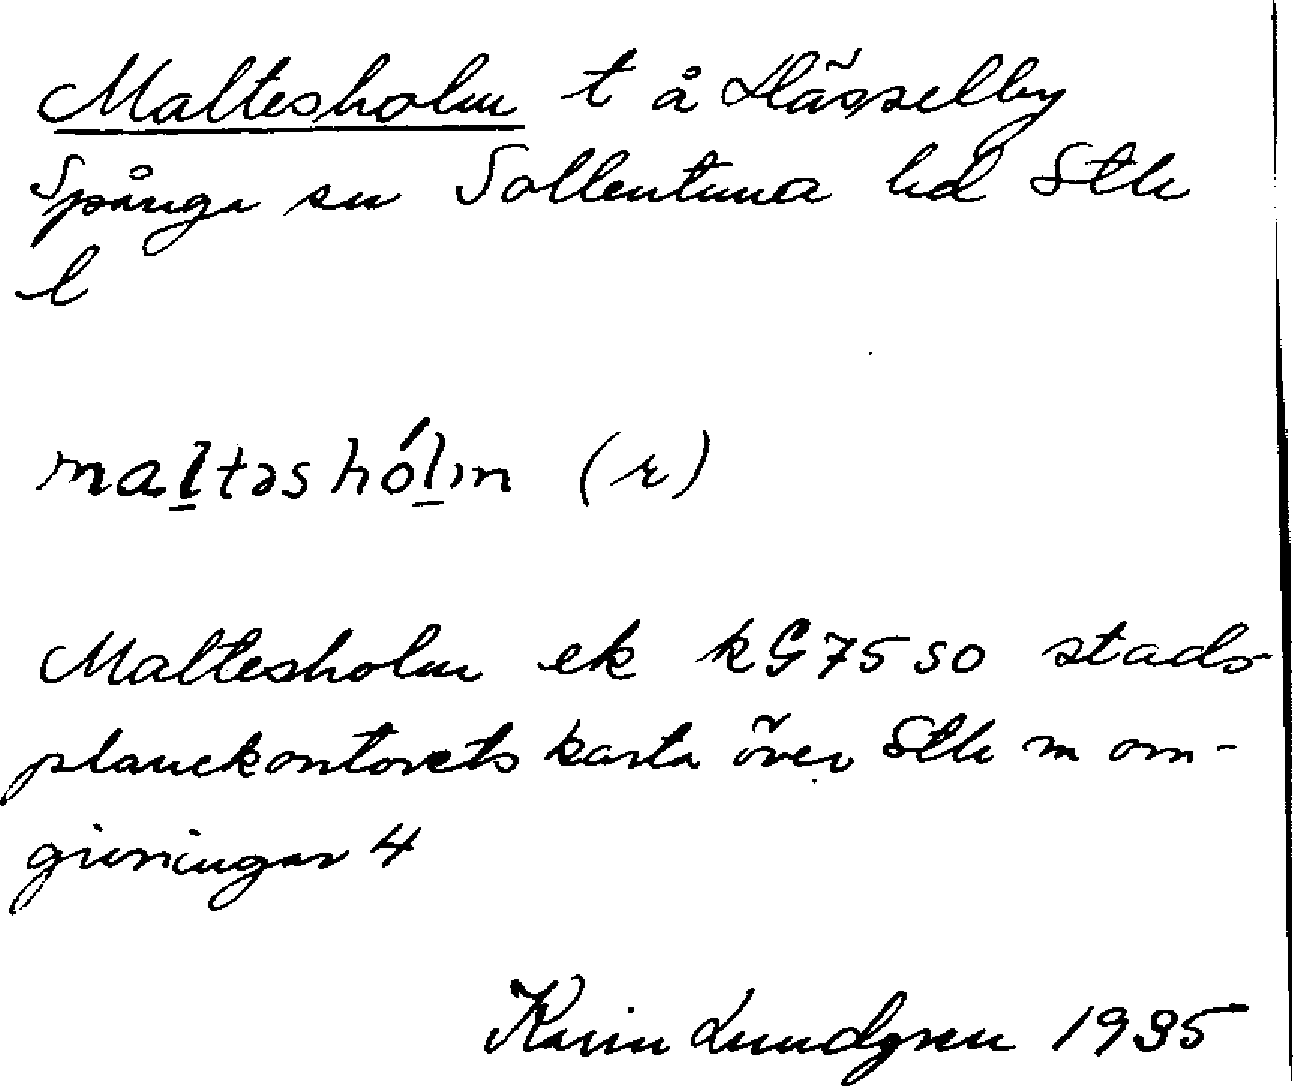 Maltesholm t å Hässelby
Spånga sn Sollentuna hd Sth
l
maltəs hólm (r)
Maltesholm ek kG 75 50 stads-
planekontorets karta över Sth m om-
givningar 4
Karin Lundgren 1935